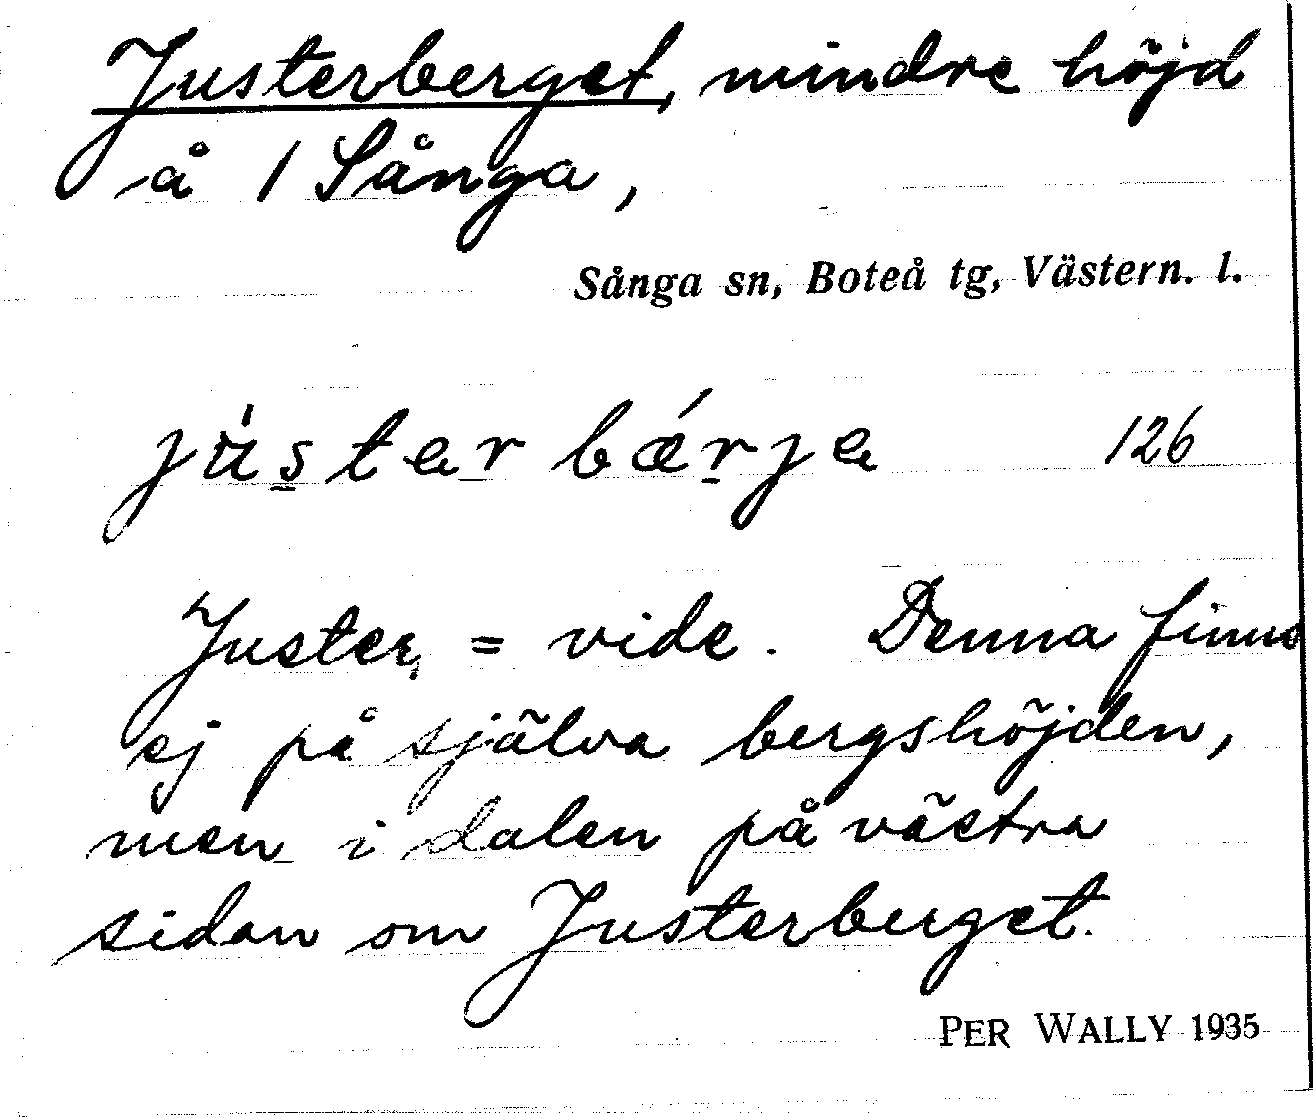 Justerberget, mindre höjd
å 1 Sånga,
Sånga sn, Boteå tg, Västern. l.
jùstar bǽrja 126
Juster = vide. Denna finns
ej på själva bergshöjden,
men i dalen på västra
sidan om Justerberget.
PER WALLY 1935